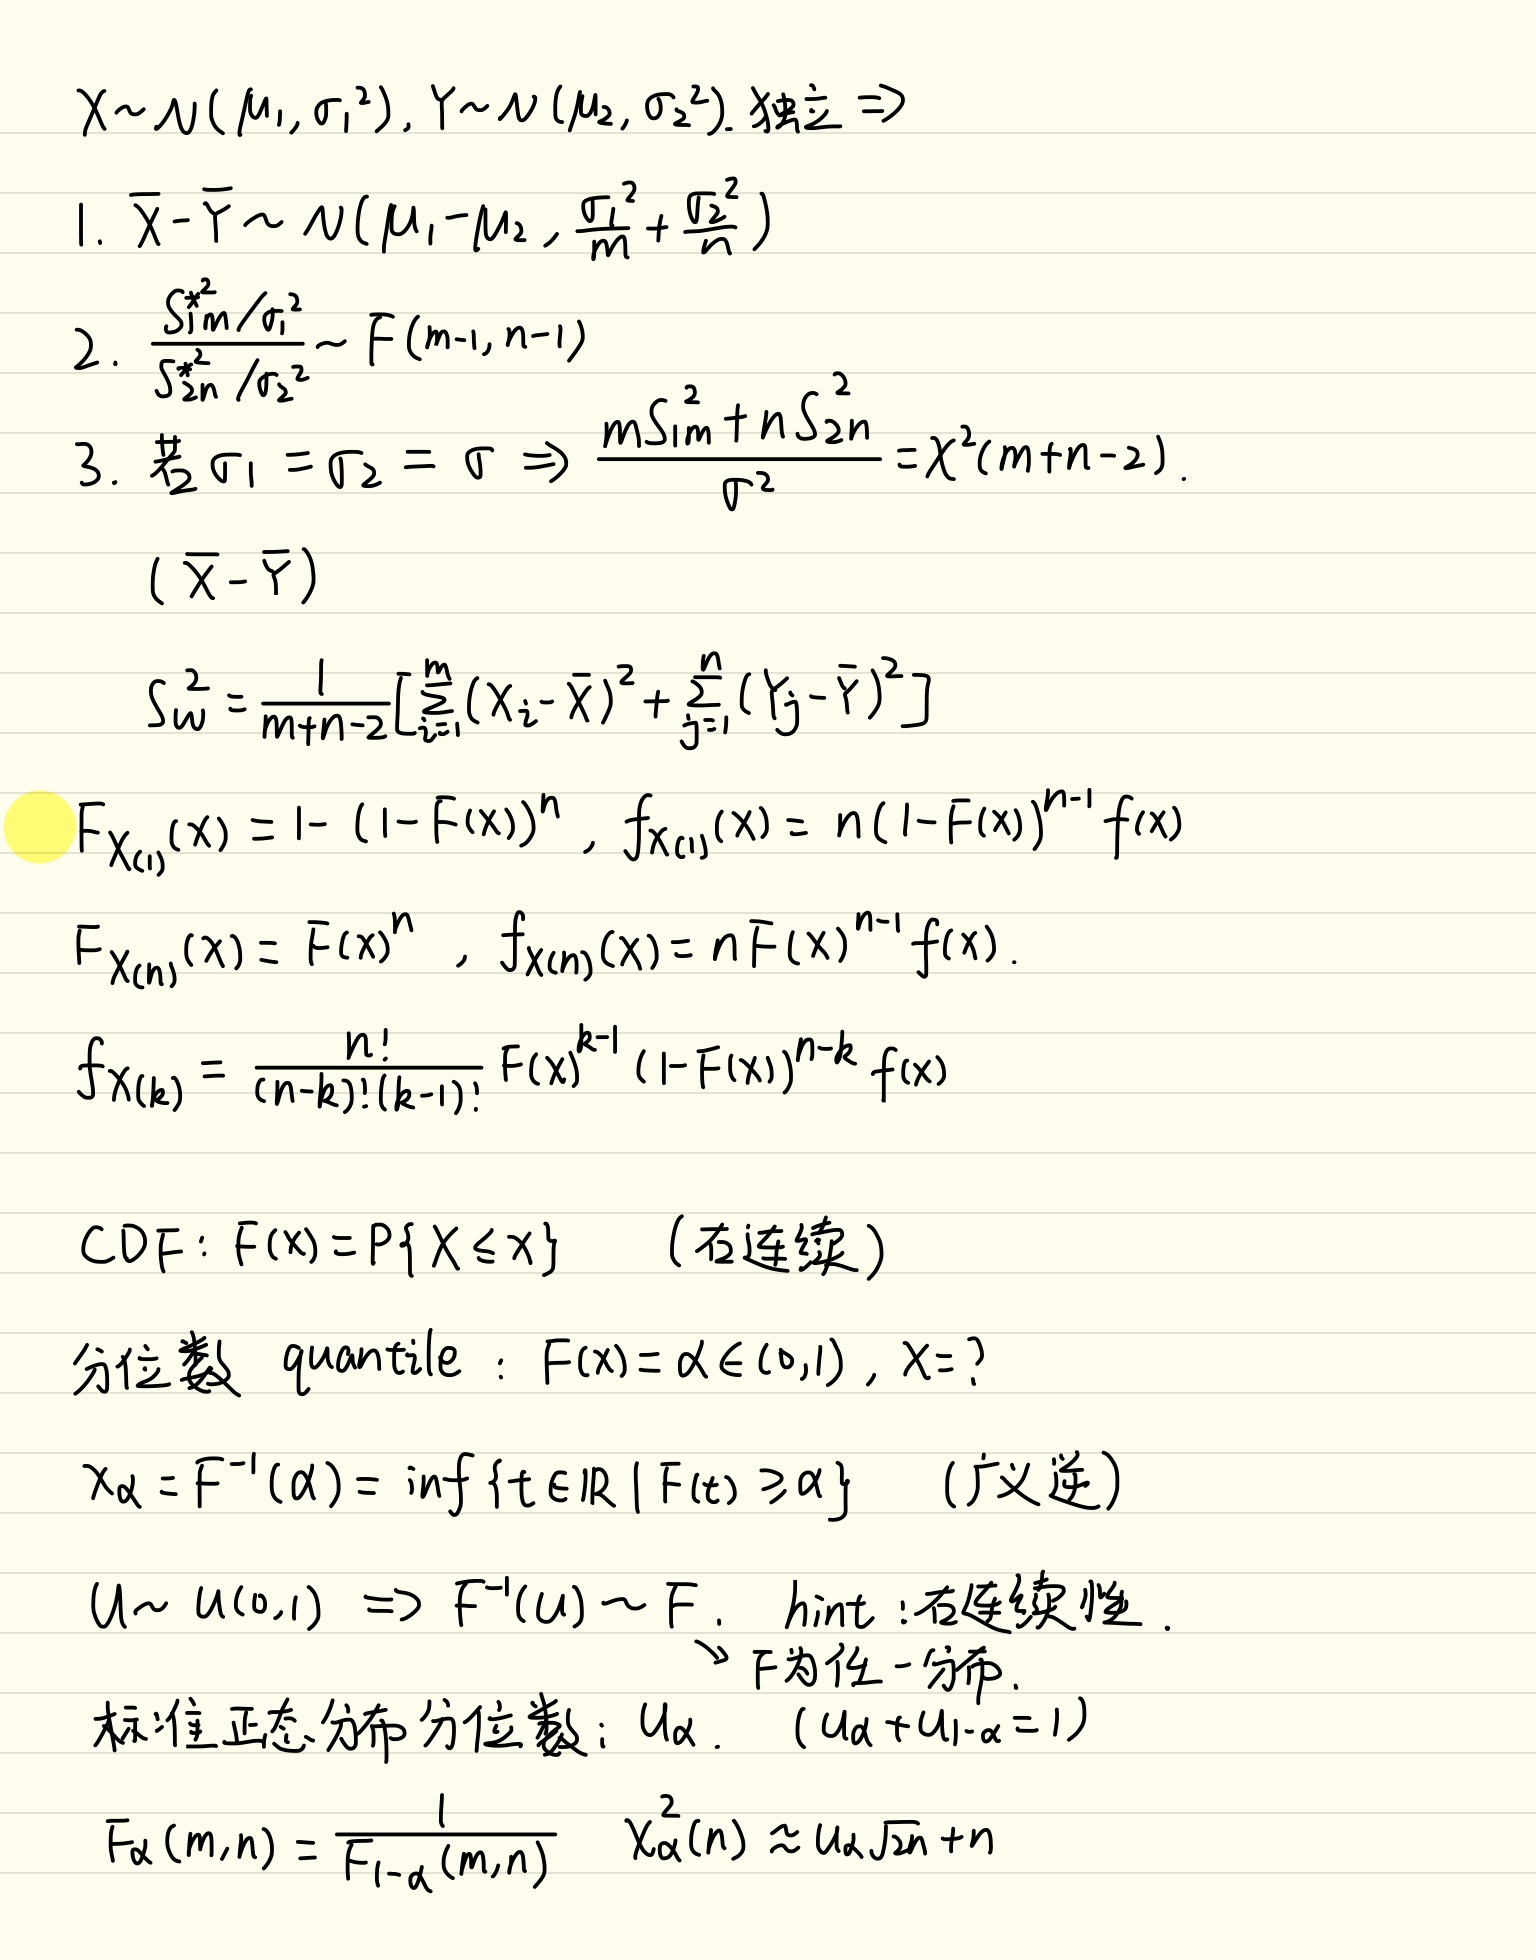 X~N(μ₁, σ₁²), Y~N(μ₂, σ₂²). 独立 ⇒
1. X̄-Ȳ ~ N(μ₁-μ₂, σ₁²/m + σ₂²/n)
2. (S*²₁ₘ/σ₁²)/(S*²₂ₙ/σ₂²) ~ F(m-1, n-1)
3. 若 σ₁ = σ₂ = σ ⇒ (mS²₁ₘ + nS²₂ₙ)/σ² = χ²(m+n-2).
(X̄-Ȳ)
S_w² = 1/(m+n-2) [∑_{i=1}^{m} (X_i-X̄)² + ∑_{j=1}^{n} (Y_j-Ȳ)²]
F_{X(1)}(x) = 1-(1-F(x))^n , f_{X(1)}(x) = n(1-F(x))^{n-1} f(x)
F_{X(n)}(x) = F(x)^n , f_{X(n)}(x) = nF(x)^{n-1} f(x).
f_{X(k)} = n!/((n-k)!(k-1)!) F(x)^{k-1} (1-F(x))^{n-k} f(x)
CDF: F(x) = P{X ≤ x} (右连续)
分位数 quantile : F(x) = α ∈ (0,1), x=?
x_α = F^{-1}(α) = inf {t ∈ ℝ | F(t) ≥ α} (广义逆)
U ~ U(0,1) ⇒ F^{-1}(U) ~ F. hint : 右连续性.
↘ F为任一分布.
标准正态分布分位数: u_α. (u_α + u_{1-α} = 1)
F_α(m,n) = 1/F_{1-α}(m,n) χ²_α(n) ≈ u_α√2n + n